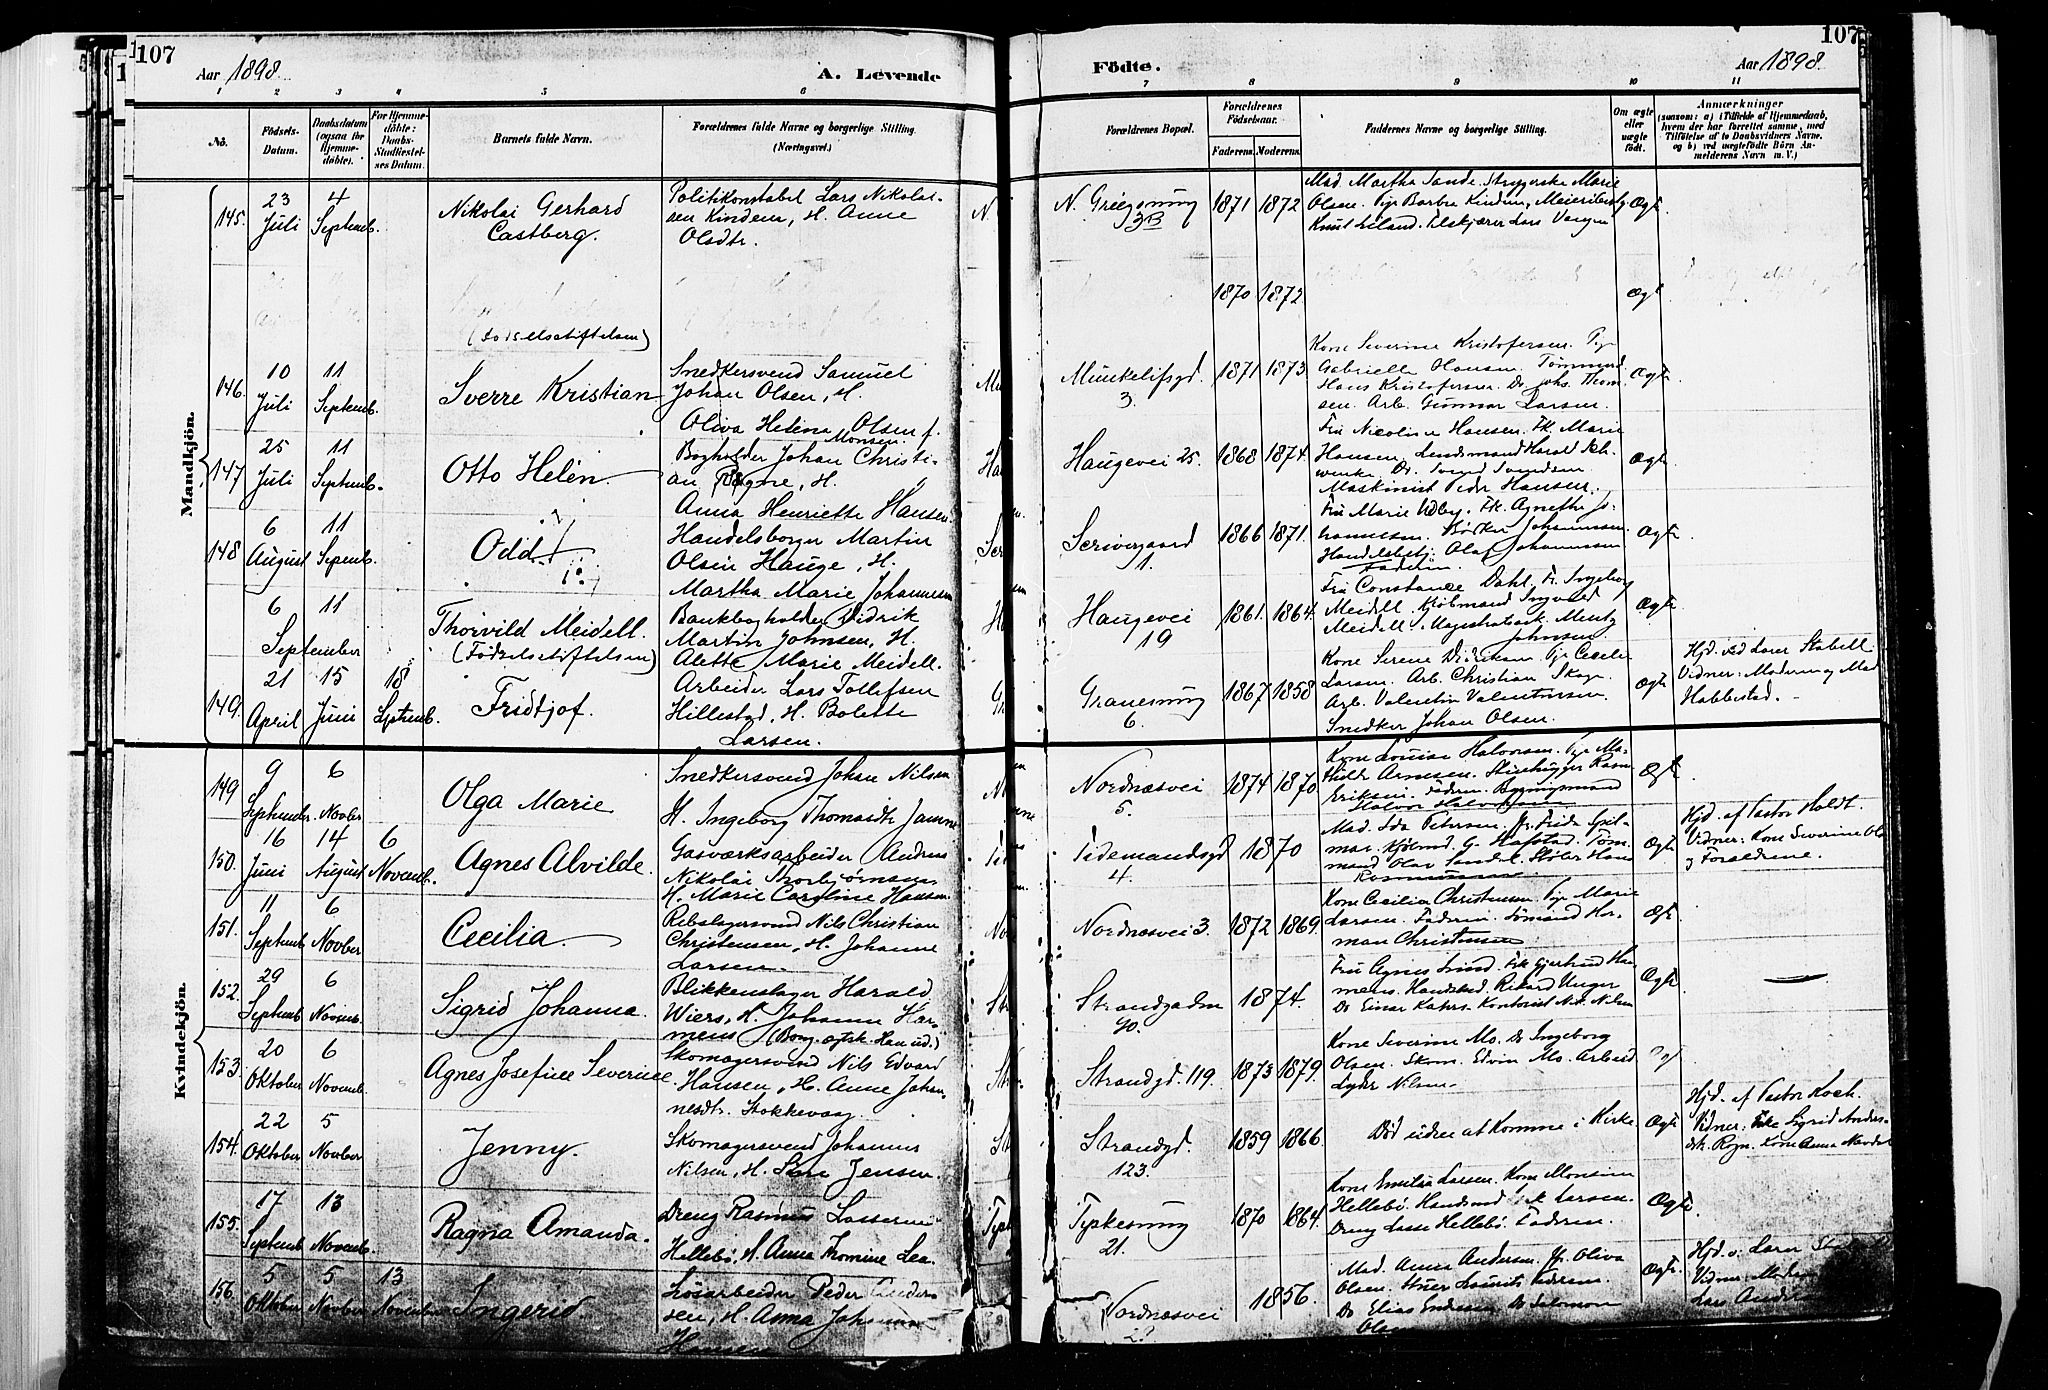 107
107
Aar 1898.
A. Levende
Födte.
Aar 1898.
1 2 3 4 5 6 7 8 9 10 11
No.
Födsels-
Datum.
Daabsdatum
(ogsaa for
Hjemme-
döbte).
For Hjemme-
döbte:
Daabs-
Stadfæstel-
ses Datum.
Barnets fulde Navn.
Forældrenes fulde Navne og borgerlige Stilling.
(Næringsvei.)
Forældrenes Bopæl.
Forældrenes
Födselsaar.
Faderens.
Moderens.
Faddernes Navne og borgerlige Stilling.
Om ægte
eller
uægte
födt.
Anmærkninger
(saasom: a) i Tilfælde af Hjemmedaab,
hvem der har forrettet samme, med
Tilföielse af to Daabsvidners Navne,
og b) ved uægtefödte Börn An-
melderens Navn m. V.)
Mandkjön.
145. 23 Juli 4 Septemb.
Nikolai Gerhard
Castberg.
Politikonstabel Lars Nikolai-
sen Kindem, H. Anne
Olsdtr.
N. Griegsmug
3B
1871 1872
Mad. Martha Sande. Strygerske Marie
Olsen. Pige Barbra Kindem, Meieribesty.
Knut Leland. Telskjærer Lars
Ægte
1870 1872
Ægt
(Fødselsstiftelsen)
146. 10 Juli 11 Septemb.
Sverre Kristian
Snedkersvend Samuel
Johan Olsen, H.
Oliva Helena Olsen f.
Monsen.
Munkelifsgd.
3.
1871 1873
Kone Severine Kristofersen. Pige
Gabrielle Olausen. Tømmermd
Hans Kristofersen. Do Johs. Thom-
sen. Arb. Gunnar Larsen.
Ægte
147 25 Juli 11 Septemb.
Otto Helén
Bogholder Johan Christi-
an Bøgne, H.
Anna Henriette Hansen.
Haugevei 25.
1868 1874.
Fru Nicoline Hansen. Fk. Marie
Hansen. Lensmand Harald Sch-
wenke. Do. Svend Svendsen
Maskinist Peder Hansen.
Ægte
148 6 August 11 Septemb.
Odd
Handelsborger Martin
Olsen Hauge, H.
Martha Marie Johannesen
Scrivergaard
1.
1866 1871.
Fru Marie Udby. Fk. Agnethe Jo-
hannesen. Johannessen.
Handelsbetj. Olaf Johannessen
Faderen.
Ægte
6 September 11
Thorvild Meidell.
(Fødselsstiftelsen)
Bankbogholder Didrik
Martin Johnsen, H.
Alette Marie Meidell.
Haugevei
19
1861. 1864.
Fru Constance Dahl. Fr. Ingeborg
Meidell. Kjøbmand Ingvald
Meidell. Magistratssek. Mentz
Johnsen.
Ægte
149. 21 April 15 Juni 18 Septemb.
Fridtjof.
Arbeider Lars Tollefsen
Hillestad, H. Bolette
Larsen.
Granesmug
6.
1867 1858
Kone Serene Didriksen. Pige Cecilie
Larsen. Arb. Christian Skage.
Arb. Valentin Valentinsen.
Snedker Johan Olsen.
Ægte
Hjd. ved Lærer Stabell
Vidner: Moderen og Mad
Habbestad.
Kvindekjön.
149 9 September 6 Novber
Olga Marie
Snedkersvend Johan Nilsen
H. Ingeborg Thomasdtr. Janne
Nordnæsvei
5.
1874 1870
Kone Louise Halvorsen. Pige Ma-
thilde Arnesen. Stenhugger Rasm
Eriksen. Faderen. Bygningsmand
Halvor Halvorsen
Ægte
150. 16 Juni 14 August 6 Novemb.
Agnes Alvilde.
Gasværksarbeider Andreas
Nikolai Thorbjørnsen,
H. Marie Caroline Hansen
Tidemandsgd
4.
1870
Mad. Ida Petersen. Fr. Frida Spil-
mar. Kjøbmd. G. Hafstad. Tøm-
mermand Olav Sandal. Støber Hans
Rasmussen
Ægte
Hjd. af Pastor Holdt.
Vidner: Kone Severine Ols
og Forældrene.
151. 11 Septemb 6 Novber
Cecilia.
Rebslagersvend Nils Christian
Christensen, H. Johanne
Larsen.
Nordnæsvei 3.
1872 1869.
Kone Cecilia Christensen. Pige Marie
Larsen. Faderen. Sømand Her-
man Christensen
Ægte
152. 29 Septemb 6 Novemb.
Sigrid Johanna.
Blikkenslager Harald
Wiers, H. Johanne Har-
mens (Borg. opsk. Han ud.)
Strandgaden
90.
1874.
Fru Agnes Lind. Frk Gjertrud Har-
mens. Handelsd. Rikard Unger
Do Einar Kahrs. Kontorist Nik. Nilsen
Ægte
153. 20 Oktober 6 Novemb.
Agnes Josefine Severine.
Skomagersvend Nils Edvard
Hansen, H. Anne Johan-
nesdt. Stokkevaag.
Strandgd. 119.
1873 1879.
Kone Severine Mo. Do Ingeborg
Olsen. Skom. Edvin Mo. Arbeid
Lyder Nilsen.
154. 22 Oktober 5 Novber
Jenny.
Skomagersvend Johannes
Nilsen, H. Sine Jensen.
Strandgd.
123.
1859 1866.
Død uden at komme i Kirke
Ægte
Hjd. af Pastor Koch.
Vidner: Frk Sigrid Anders-
Kone Anna
155. 17 Septemb. 13 Novemb.
Ragna Amanda.
Dreng Rasmus Lassesen
Hellebø, H. Anna Thomine Lea.
Tyskesmug
21.
1870 1864.
Kone Emilia Larsen. Kone Monsine
Hellebø. Handsmd Larsen.
Dreng Lasse Hellebø. Faderen.
Ægte
156. 5 Oktober 5 Novber 13 November
Ingerid.
Løsarbeider Peder Anders-
sen, H. Anna Johanne
Hansen
Nordnæsvei
1856.
Mad. Anna Andersen. Fr. Oliva
Olsen. Stuer Laurits Pedersen.
Do Elias Endresen. Do Salomon
Olsen
Ægte
Hjd. v. Lærer
Vidner: Moderen
Lars Andersen